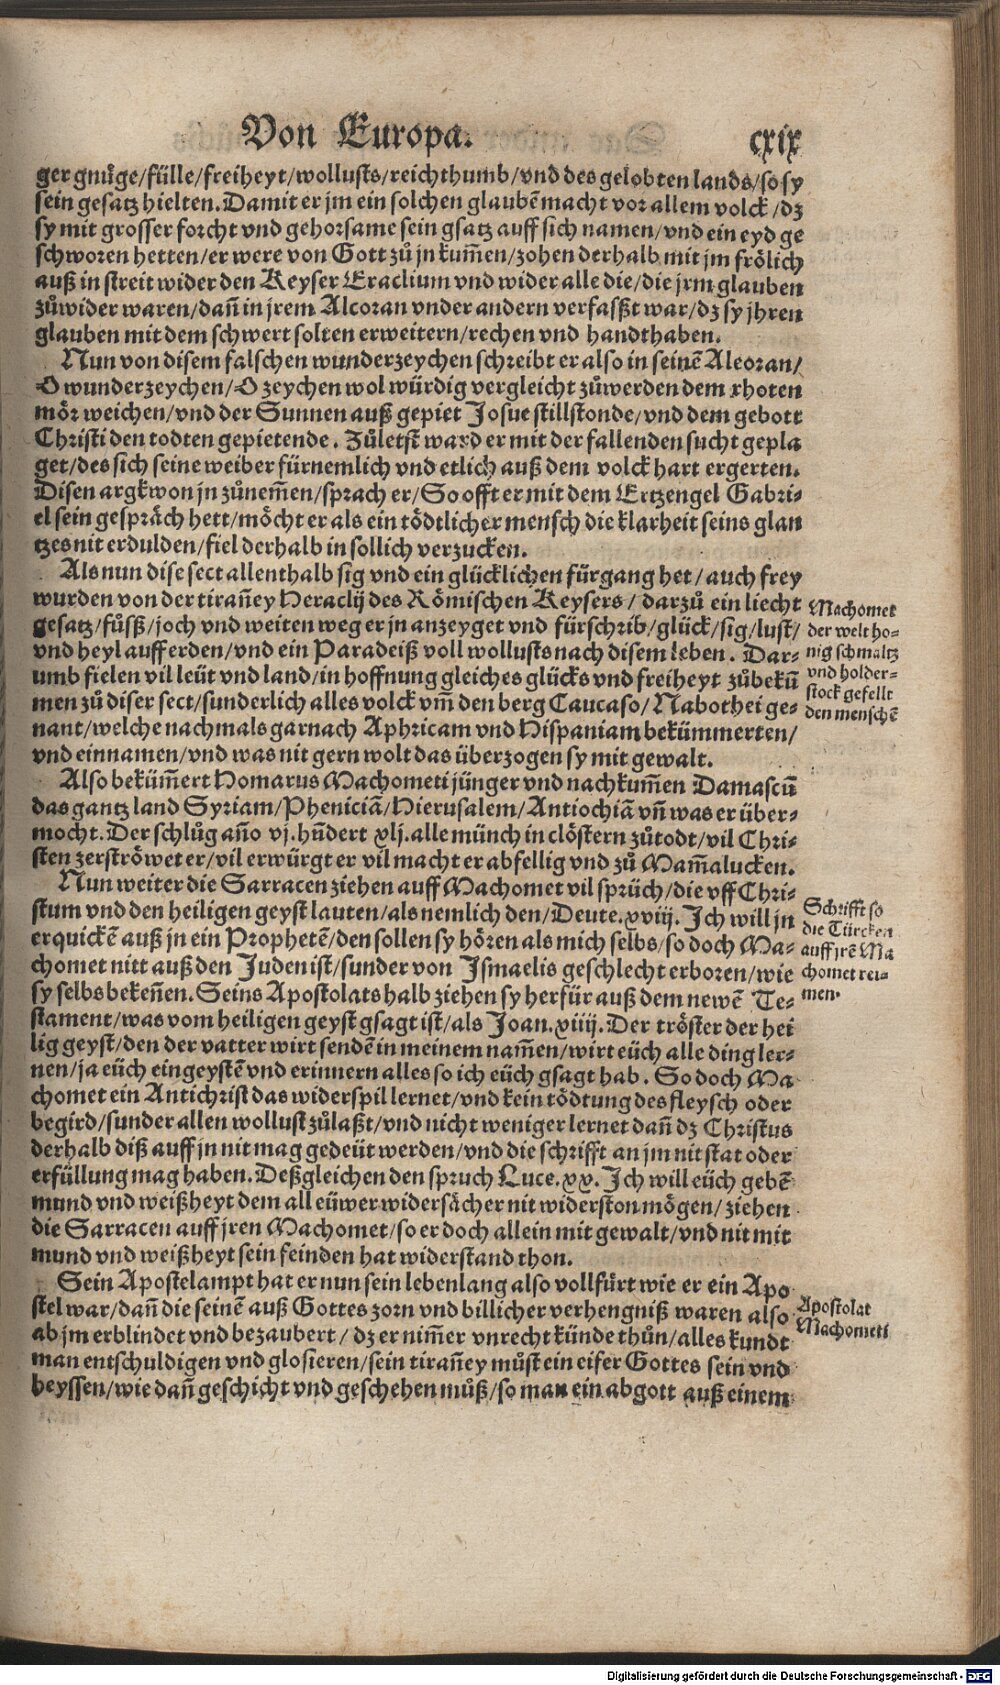 Von Europa.
cxix
ger gnůge/fülle/freiheyt/wollusts/reichthumb/vnd des gelobten lands/so sy
sein gesatz hielten. Damit er jm ein solchen glaubẽ macht vor allem volck/dz
sy mit grosser forcht vnd gehorsame sein gsatz auff sich namen/vnd ein eyd ge
schworen hetten/er were von Gott zů jn kum̃en/zohen derhalb mit jm frölich
auß in streit wider den Keyser Eraclium vnd wider alle die/die jrm glauben
zůwider waren/dañ in jrem Alcoran vnder andern verfasßt war/dz sy jhren
glauben mit dem schwert solten erweitern/rechen vnd handthaben.
Nun von disem falschen wunderzeychen schreibt er also in seinẽ Alcoran/
O wunderzeychen/O zeychen wol würdig vergleicht zůwerden dem rhoten
mör weichen/vnd der Sunnen auß gepiet Josue stillstonde/vnd dem gebott
Christi den todten gepietende. Zůletst ward er mit der fallenden sucht gepla
get/des sich seine weiber fürnemlich vnd etlich auß dem volck hart ergerten.
Disen argkwon jn zůnem̃en/sprach er/So offt er mit dem Ertzengel Gabri-
el sein gespräch hett/möcht er als ein tödtlicher mensch die klarheit seins glan
tzes nit erdulden/fiel derhalb in sollich verzucken.
Als nun dise sect allenthalb sig vnd ein glücklichen fürgang het/auch frey
wurden von der tirañey Heraclij des Römischen Keysers/darzů ein liecht
gesatz/fůsß/joch vnd weiten weg er jn anzeyget vnd fürschrib/glück/sig/lust/
vnd heyl auff erden/vnd ein Paradeiß voll wollusts nach disem leben. Dar-
umb fielen vil leüt vnd land/in hoffnung gleiches glücks vnd freiheyt zůbekũ
men zů diser sect/sunderlich alles volck vm̃ den berg Caucaso/Nabothei ge-
nant/welche nachmals gar nach Aphricam vnd Hispaniam bekümmerten/
vnd einnamen/vnd was nit gern wolt das überzogen sy mit gewalt.
Machomet
der welt ho-
nig schmaltz
vnd holder-
stock gefellt
den menschẽ
Also beküm̃ert Homarus Machometi jünger vnd nachkum̃en Damascũ
das gantz land Syriam/Pheniciã/Hierusalem/Antiochiã vñ was er über-
mocht. Der schlůg año vj. hñdert xlj. alle münch in clöstern zůtodt/vil Chri-
sten zerströwet er/vil erwürgt er vil macht er abfellig vnd zů Mam̃alucken.
Nun weiter die Sarracen ziehen auff Machomet vil sprüch/die vff Chri-
stum vnd den heiligen geyst lauten/als nemlich den/Deute. xviij. Ich will jn
erquickẽ auß jn ein Prophetẽ/den sollen sy hören als mich selbs/so doch Ma-
chomet nitt auß den Juden ist/sunder von Ismaelis geschlecht erboren/wie
sy selbs bekeñen. Seins Apostolats halb ziehen sy herfür auß dem newẽ Te-
stament/was vom heiligen geyst gsagt ist/als Joan. xiiij. Der tröster der hei
lig geyst/den der vatter wirt sendẽ in meinem nam̃en/wirt eüch alle ding ler-
nen/ja eüch eingeystẽ vnd erinnern alles so ich eüch gsagt hab. So doch Ma
chomet ein Antichrist das widerspil lernet/vnd kein tödtung des fleysch oder
begird/sunder allen wollust zůlaßt/vnd nicht weniger lernet dañ dz Christus
derhalb diß auff jn nit mag gedeüt werden/vnd die schrifft an jm nit stat oder
erfüllung mag haben. Deßgleichen den spruch Luce. xx. Ich will eüch gebẽ
mund vnd weißheyt dem all eüwer widersächer nit widerston mögen/ziehen
die Sarracen auff jren Machomet/so er doch allein mit gewalt/vnd nit mit
mund vnd weißheyt sein feinden hat widerstand thon.
Schrifft so
die Türcken
auff jrẽ Ma
chomet rei-
men.
Sein Apostelampt hat er nun sein lebenlang also vollfürt wie er ein Apo
stel war/dañ die seinẽ auß Gottes zorn vnd billicher verhengniß waren also
ab jm erblindet vnd bezaubert/dz er nim̃er vnrecht künde thůn/alles kundt
man entschuldigen vnd glosieren/sein tirañey můst ein eifer Gottes sein vnd
heyssen/wie dañ geschicht vnd geschehen můß/so man ein abgott auß einem
Apostolat
Machometi
Digitalisierung gefördert durch die Deutsche Forschungsgemeinschaft - DFG